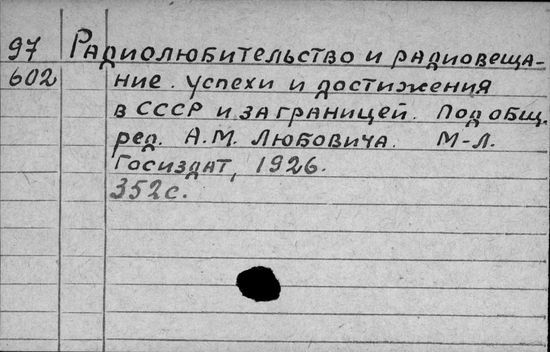 97 Радиолюбительство и радиовеща-
602 ние. Успехи и достижения
в СССР и за границей. Под общ.
ред. А.М. Любовича. М-Л.
Госиздат, 1926.
352с.